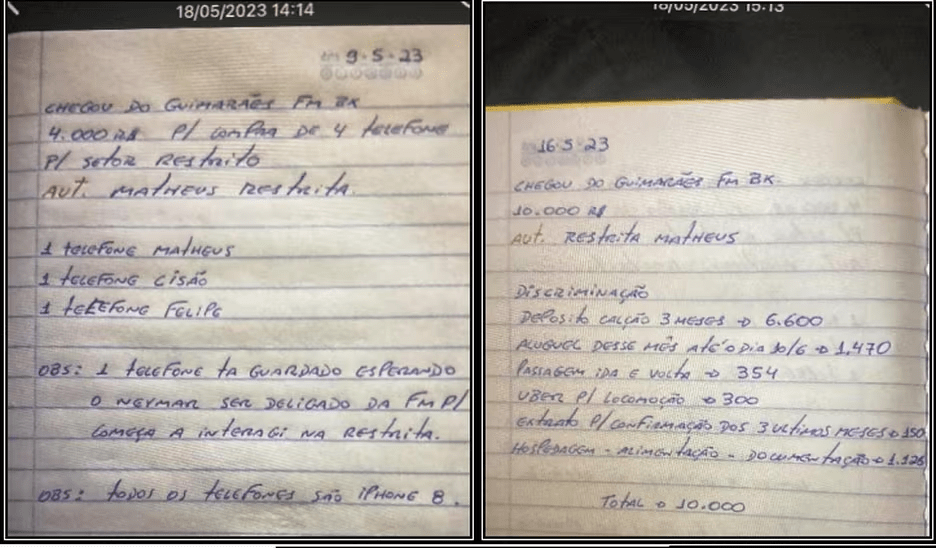 18/05/2023 14:14
9.5.23
CHEGOU DO GUIMARÃES FM BK
4.000 R$ P/ COMPRA DE 4 TELEFONE
P/ SETOR RESTRITO
AUT. MATHEUS RESTRITA.
1 TELEFONE MATHEUS
1 TELEFONE CISÃO
1 TELEFONE FELIPE
OBS: 1 TELEFONE TA GUARDADO ESPERANDO
O NEYMAR SER DELIGADO DA FM P/
COMEÇA A INTERAGI NA RESTRITA.
OBS: TODOS OS TELEFONES SÃO IPHONE 8.
18/05/2023 15:13
16.5.23
CHEGOU DO GUIMARÃES FM BK.
10.000 R$
AUT. RESTRITA MATHEUS
DISCRIMINAÇÃO
DEPOSITO CALÇÃO 3 MESES → 6.600
ALUGUEL DESSE MÊS ATÉ O DIA 10/6 → 1.470
PASSAGEM IDA E VOLTA → 354
UBER P/ LOCOMOÇÃO → 300
EXTRATO P/ CONFIRMAÇÃO DOS 3 ULTIMOS MESES → 150
HOSPEDAGEM - ALIMENTAÇÃO - DOCUMENTAÇÃO → 1.126
TOTAL → 10.000